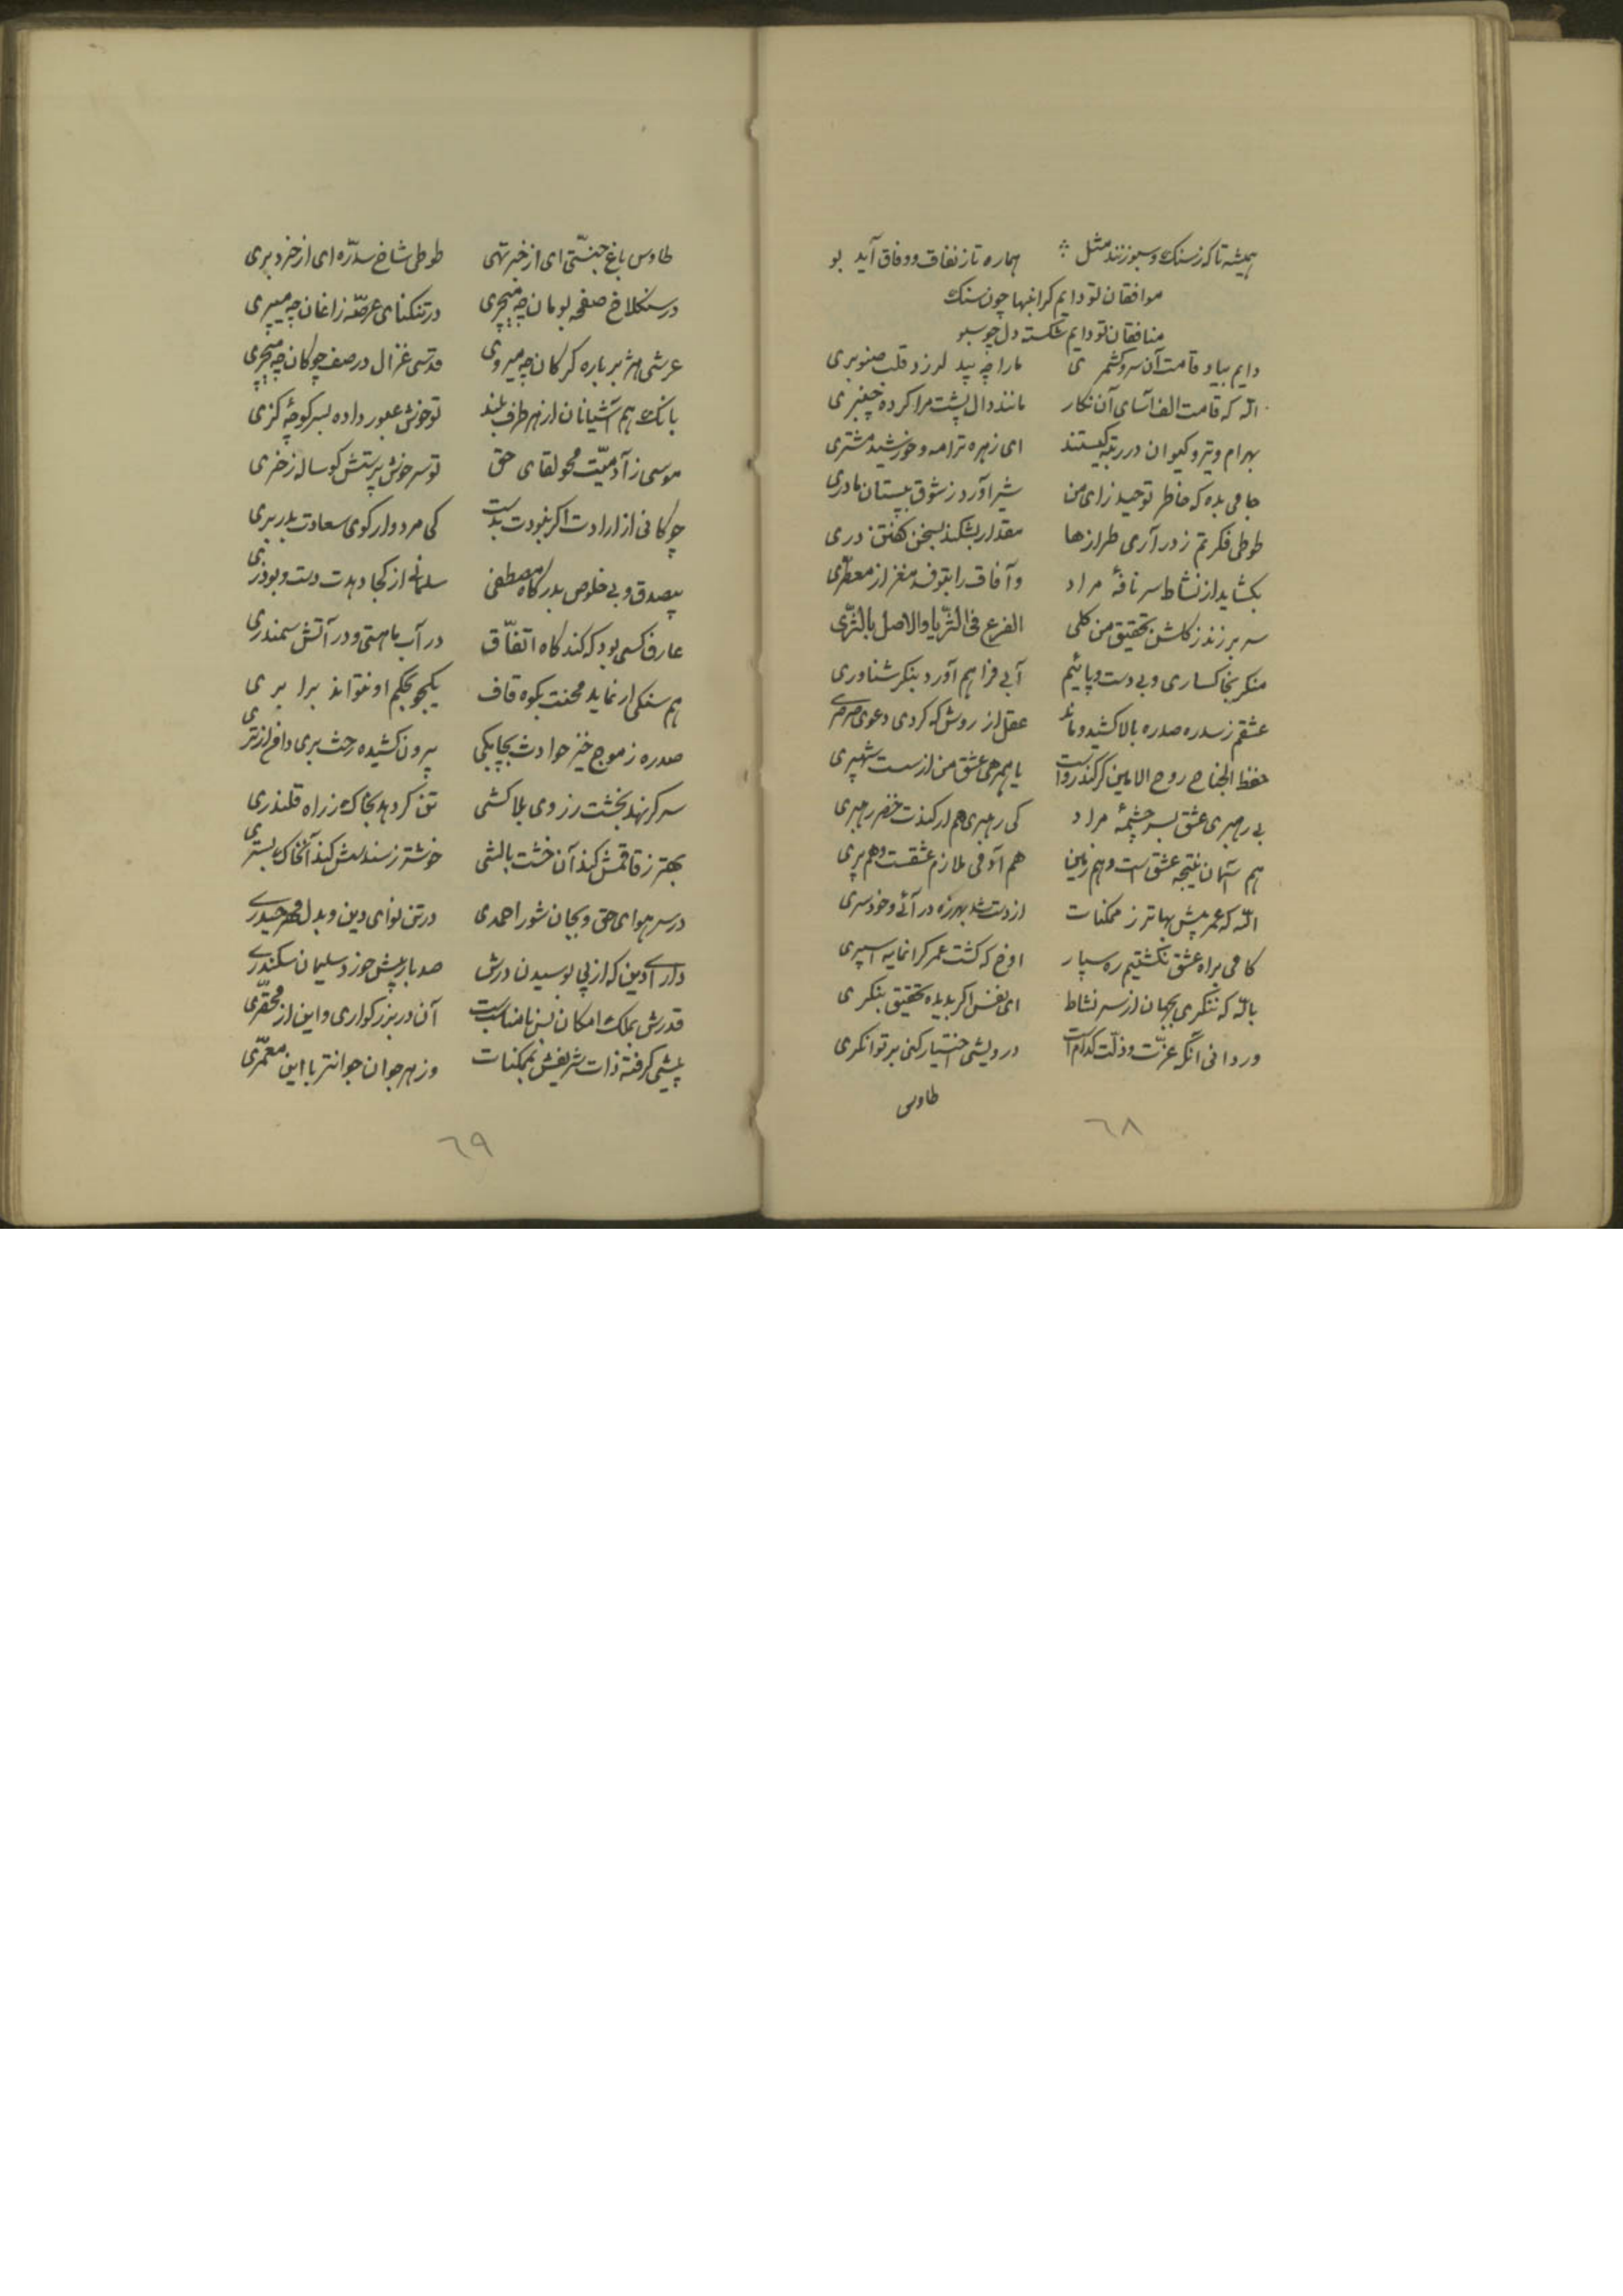 همیشه تا که ز سنک و سبو زنند مثل هماره تا ز نفاق و وفاق آید بو
موافقان تو دایم کرانبها چون سنک
منافقان تو دایم شکسته دل چو سبو
دایم بیاد قامت آن سرو کشمری ما را چه بید لرزد قلب صنوبری
الله که قامت الف آسای آن نکار مانند دال پشت مرا کرده چنبری
بهرام و تیر و کیوان در رتبه کیستند ای زهره ترا مه و خورشید مشتری
جامی بده که خاطر توحید زای من شیر آورد ز شوق بپستان مادری
طوطی فکرتم ز در آری طرازها مقدار بشکند بسخن کفتن دری
بکشاید از نشاط سر نافهٔ مراد و آفاق را بتوفد مغز از معطری
سر برزند ز کلشن تحقیق من کلی الفرع فی الثریا والاصل بالثری
منکر بخاکساری و بی دست و پائیم آبی فراهم آور و بنکر شناوری
عشقم ز سدره صدره بالا کشید و ماند عقل از روش که کردی دعوی صرصری
خفظ الجناح روح الامین کر کند رواست با همرهی عشق من از سست شهپری
بی رهبری عشق بسر چشمهٔ مراد کی رهبری هم ار کندت خضر رهبری
هم آسمان نتیجه عشق است و هم زمین هم آدمی ملازم عشقست و هم پری
الله که عمر بیش بهاتر ز ممکنات از دست شد بهرزه در آئی و خودسری
کامی براه عشق نکشتیم ره سپار اوخ که کشت عمر کرانمایه اسپری
بالله که ننکری بجهان از سر نشاط ای نفس اکر بدیده تحقیق بنکری
ور دانی آنکه عزّت و ذلّت کدام است درویشی اختیار کنی بر توانکری
طاوس
٦٨
طاوس باغ جنّتی ای از خبر تهی طوطی شاخ سدره ای از خرد بری
در سنکلاخ صفحه بومان چه میچری در تنکنای عرصّه زاغان چه میپری
عرشی هژبر باره کرکان چه میروی قدسی غزال در صف چوکان چه میچری
بانک هم آشیانان از هر طرف بلند تو خوش عبور داده بسر کوچهٔ کری
موسی ز آدمیّت محو لقای حق تو سر خوش پرستش کوساله ز خری
چوکانی از ارادت اکر نبودت بدست کی مردوار کوی سعادت بدر بری
بیصدق و بی خلوص بدرکاه مصطفی سلمانی از کجا دهدت دست و بوذری
عارف کسی بود که کند کاه اتفّاق در آب ماهتی و در آتش سمندری
هم سنکی ار نماید محنت بکوه قاف یکجو بحکم او نتواند برابری
صدره ز موج خیز حوادث بچابکی بیرون کشیده رخت بری دامن از تری
سر کر نهد بخشت ز روی بلاکشی تن کر دهد بخاک ز راه قلندری
بهتر ز قاقمش کند آن خشت بالشی خوشتر ز سندسش کند آنخاک بستری
در سر هوای حق و بجان شور احمدی در تن نوای دین و بدل مهر حیدری
دارای دین که از پی بوسیدن درش صد بار بیش خورد سلیمان سکندری
قدرش بملک امکان بس نامناسبست آن در بزرکواری و این از محقّری
پیشی کرفته ذات شریفش بممکنات وز هر جوان جوانتر با این معمّری
٦٩